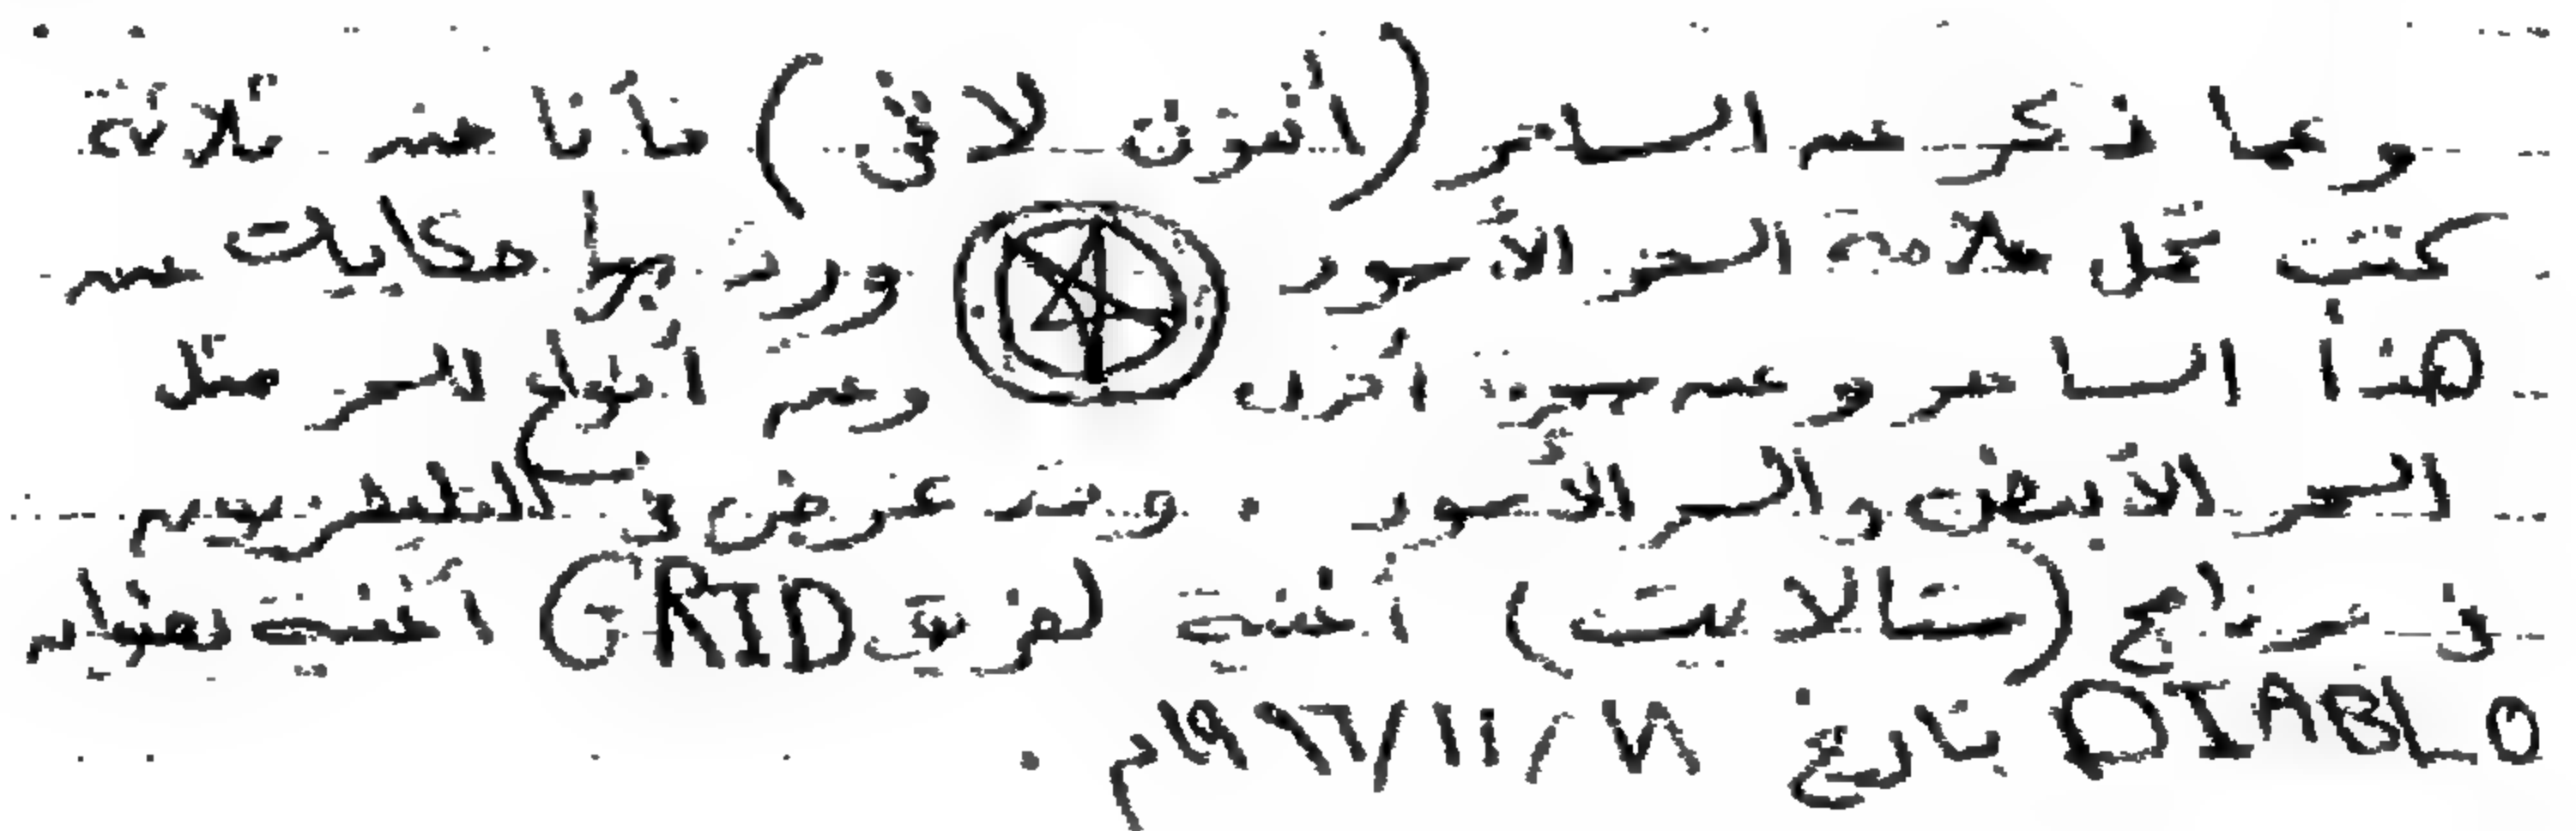 وعما ذكر عن الساحر (أنتون لافي) فأنا عندي ثلاثة
كتب تحمل علامة السحر الأسود ورد بها حكايات عن
هذا الساحر وعن سيرة أخرى وعن أنواع للسحر مثل
السحر الأبيض والسحر الأسود . وقد عرض في التلفزيون
في برنامج (ستالايت) أغنية لفريق GRID أغنية بعنوان
DIABLO تاريخ ١١/٧٨/١٩٩٦م .